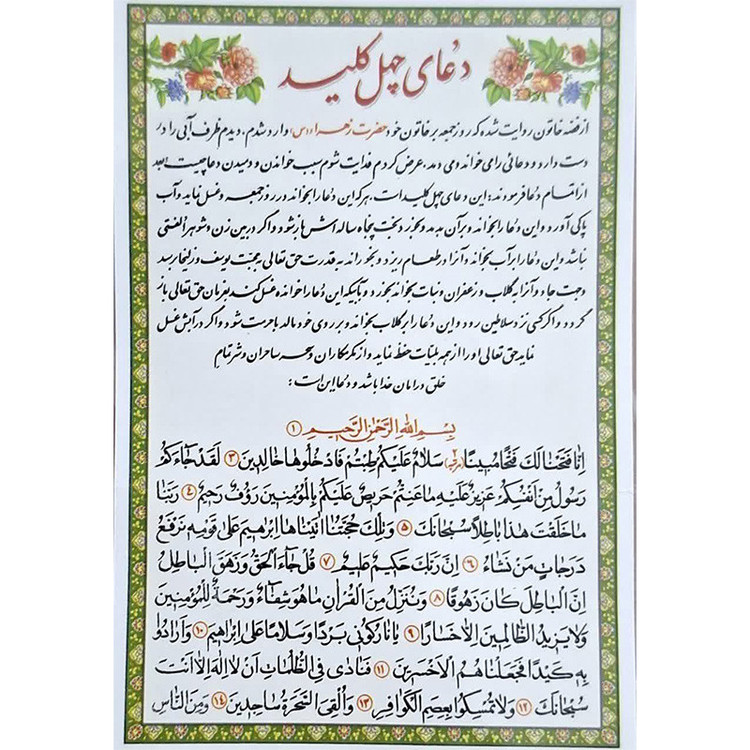 دعای چهل کلید
از فضه خاتون روایت شده که روز جمعه بر خاتون خود حضرت زهرا (س) وارد شدم، دیدم ظرف آبی را در
دست دارد و دعائی را می خواند و می دمد، عرض کردم فدایت شوم سبب خواندن و دمیدن دعا چیست بعد
از اتمام دعا فرمودند: این دعای چهل کلید است، هر که این دعا را بخواند و در روز جمعه و غسل نماید و آب
پاکی آورد و این دعا را بخواند و بر آن بدمد و بخورد بخت پنجاه ساله اش باز شود و اگر در بین زن و شوهر الفتی
نباشد و این دعا را بر آب بخواند و آنرا در طعام ریزد و بخوراند به قدرت حق تعالی محبت یوسف و زلیخا رسد
و جهت جادو آنرا به گلاب و زعفران و نبات بخواند بخورد و تا بیکه این دعا را خوانده غسل کند بفرمان حق تعالی باز
گردد و اگر کسی نزد سلاطین رود و این دعا را بر گلاب بخواند و بر روی خود مالد با حرمت شود و اگر در آبش غسل
نماید حق تعالی او را از همه بلیات حفظ نماید و از مکر مکاران و سحر ساحران و شر تمام
خلق در امان خدا باشد و دعا این است:
بِسْمِ اللهِ الرَّحْمٰنِ الرَّحیمِ ۱
اِنّا فَتَحْنا لَكَ فَتْحًا مُبینًا ۲ سَلامٌ عَلَیْكُمْ طِبْتُمْ فَادْخُلُوها خالِدینَ ۳ لَقَدْ جاءَكُمْ
رَسُولٌ مِنْ اَنْفُسِكُمْ عَزیزٌ عَلَیْهِ ما عَنِتُّمْ حَریصٌ عَلَیْكُمْ بِالْمُؤْمِنینَ رَؤُفٌ رَحیمٌ ۴ رَبَّنا
ما خَلَقْتَ هذا باطِلًا سُبْحانَكَ ۵ وَتِلْكَ حُجَّتُنا اتَیْناها اِبْرهیمَ عَلى قَوْمِهِ نَرْفَعُ
دَرَجاتٍ مَنْ نَشاءُ ۶ اِنَّ رَبَّكَ حَكیمٌ عَلیمٌ ۷ قُلْ جاءَ الْحَقُّ وَزَهَقَ الْباطِلُ
اِنَّ الْباطِلَ كانَ زَهُوقًا ۸ وَنُنَزِّلُ مِنَ الْقُرْانِ ما هُوَ شِفاءٌ وَرَحْمَةٌ لِلْمُؤْمِنینَ
وَلا یَزیدُ الظّالِمینَ اِلّا خَسارًا ۹ یا نارُ كُونی بَرْدًا وَسَلامًا عَلى اِبْراهیمَ ۱۰ وَاَرادُوا
بِهِ كَیْدًا فَجَعَلْناهُمُ الْاَخْسَرینَ ۱۱ فَنادى فِی الظُّلُماتِ اَنْ لا اِلهَ اِلّا اَنْتَ
سُبْحانَكَ ۱۲ وَلا تُمْسِكُوا بِعِصَمِ الْكَوافِرِ ۱۳ وَاُلْقِیَ السَّحَرَةُ ساجِدینَ ۱۴ وَمِنَ النّاسِ